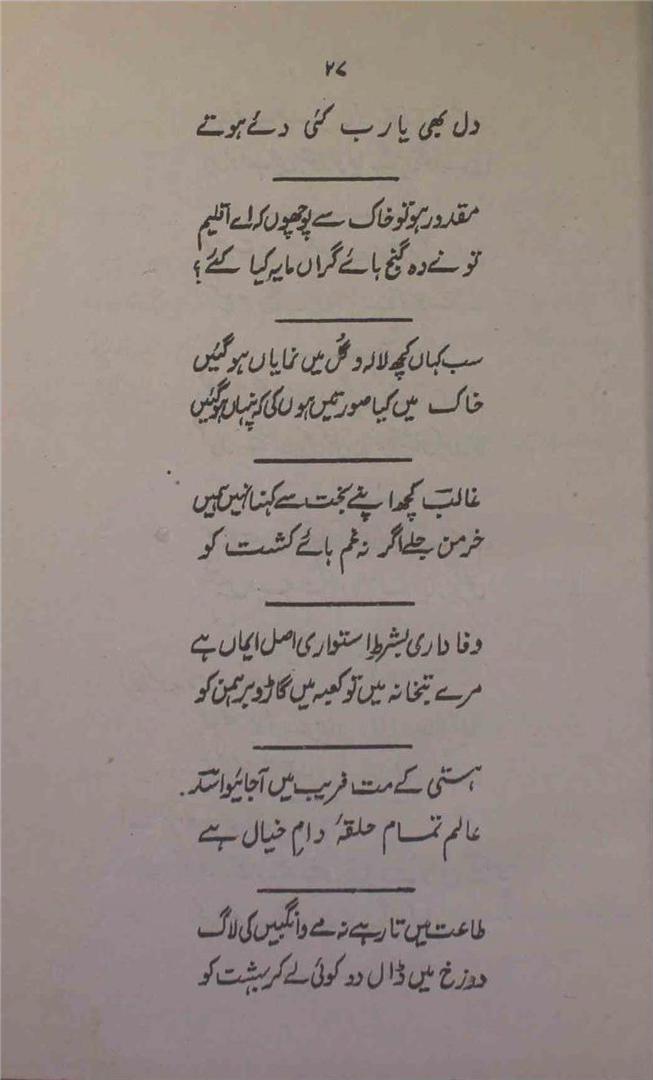 ۲۷
دل بھی یا رب کئی دئے ہوتے
مقدور ہو تو خاک سے پوچھوں کہ اے اقلیم
تو نے دہ گنج ہائے گراں مایہ کیا کئے؟
سب کہاں کچھ لالہ و گُل میں نمایاں ہو گئیں
خاک میں کیا صورتیں ہوں گی کہ پنہاں ہو گئیں
غالبؔ کچھ اپنے بخت سے کہنا نہیں ہمیں
خرمن جلے اگر نہ غم ہائے کشت کو
وفاداری بشرطِ استواری اصل ایماں ہے
مرے بتخانہ میں تو کعبہ میں گاڑو برہمن کو
ہستی کے مت فریب میں آجائیو اسدؔ
عالم تمام حلقۂ دامِ خیال ہے
طاعت میں تا رہے نہ مے و انگبیں کی لاگ
دوزخ میں ڈال دو کوئی لے کر بہشت کو